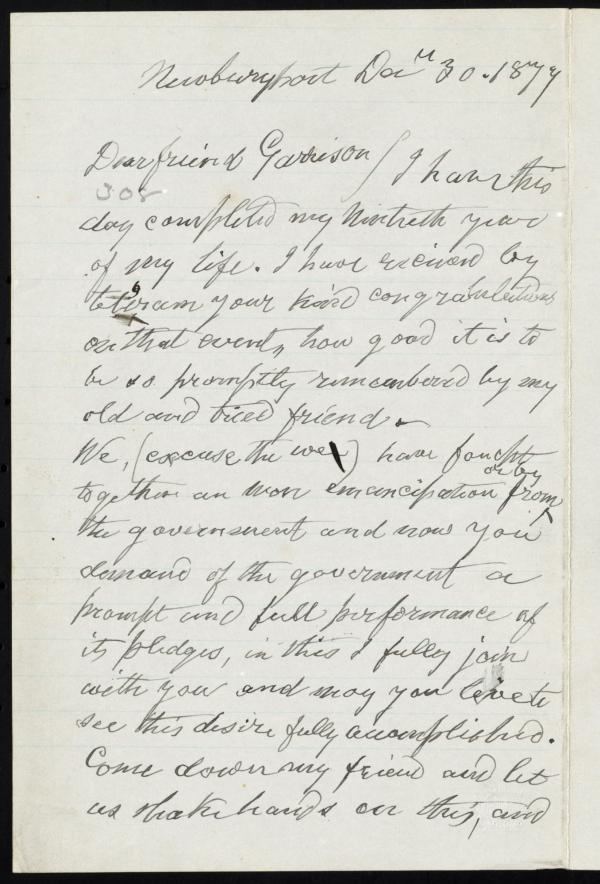 Newburyport Dec 30. 1877
Dear friend Garrison / I have this
308
day completed my Nintieth year
of my life. I have received by
telegram your kind congratulations
on that event, how good it is to
be so promptly remembered by my
old and tried friend.
We, (excuse the we) have fought
or by
together an won emancipation from
the government and now you
demand of the government a
prompt and full performance of
its pledges, in this I fully join
with you and may you live to
see this desire fully accomplished.
Come down my friend and let
us shake hands on this, and